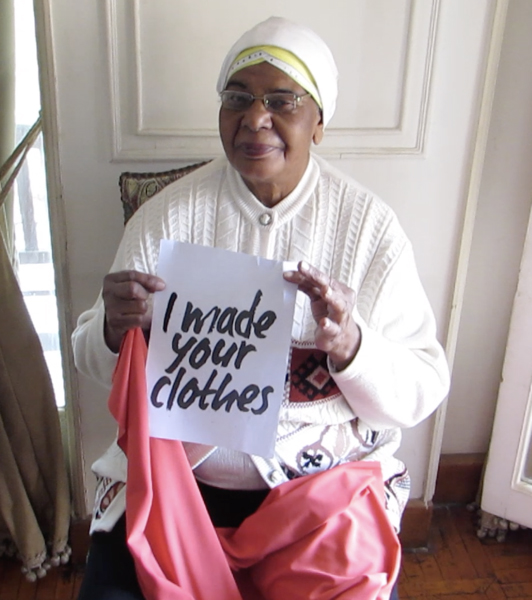 I made
your
clothes